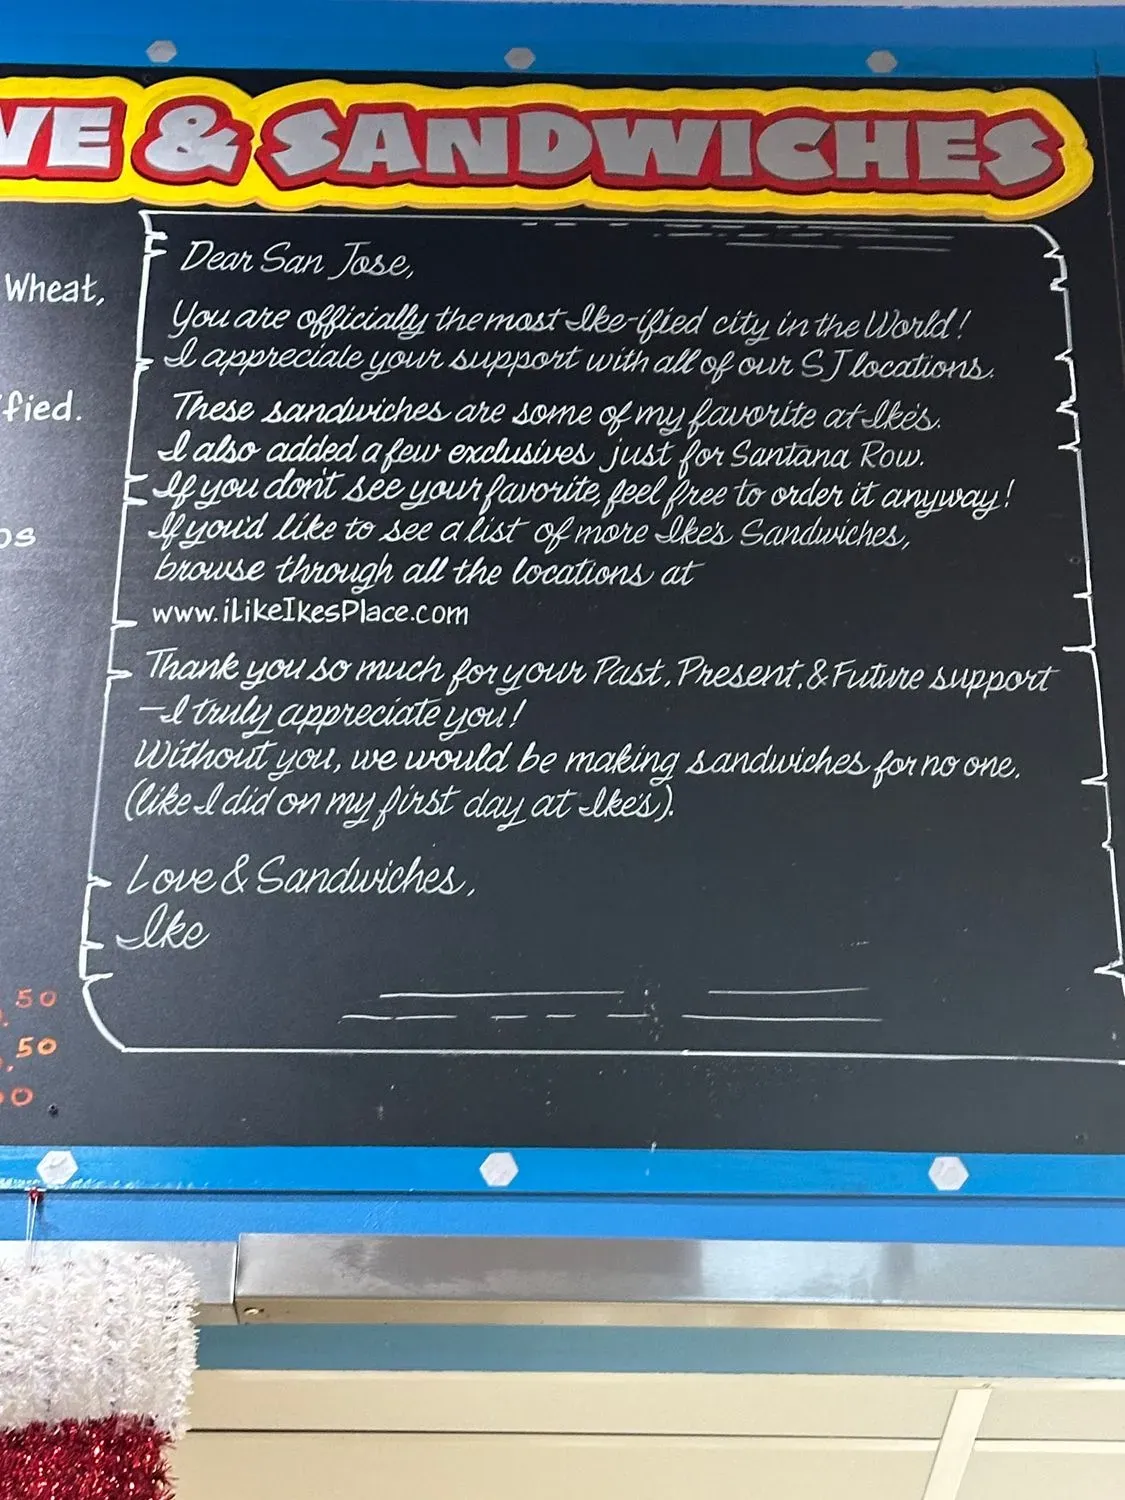 VE & SANDWICHES
Wheat,
fied.
os
50
50
Dear San Jose,
You are officially the most Ike-ified city in the World!
I appreciate your support with all of our SJ locations.
These sandwiches are some of my favorite at Ike's.
I also added a few exclusives just for Santana Row.
If you don't see your favorite, feel free to order it anyway!
If you'd like to see a list of more Ike's Sandwiches,
browse through all the locations at
www.iLikeIkesPlace.com
Thank you so much for your Past, Present, & Future support
-I truly appreciate you!
Without you, we would be making sandwiches for no one.
(like I did on my first day at Ike's).
Love & Sandwiches,
Ike